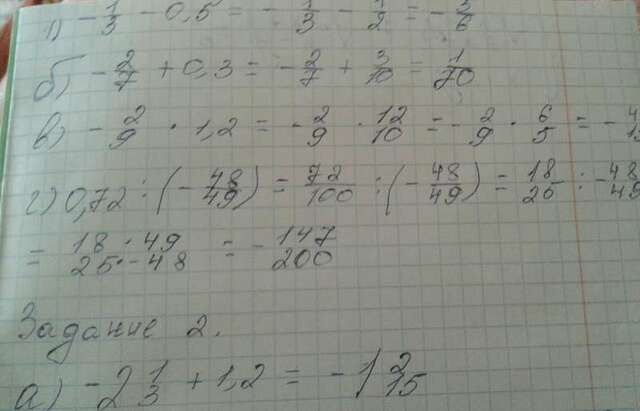 1) -1/3 - 0,5 = -1/3 - 1/2 = -5/6
б) -2/7 + 0,3 = -2/7 + 3/10 = 1/70
в) -2/9 · 1,2 = -2/9 · 12/10 = -2/9 · 6/5 = -4/15
г) 0,72 : (-48/49) = 72/100 : (-48/49) = 18/25 : -48/49
= 18 · 49 / 25 · -48 = -147/200
Задание 2.
а) -2 1/3 + 1,2 = -1 2/15